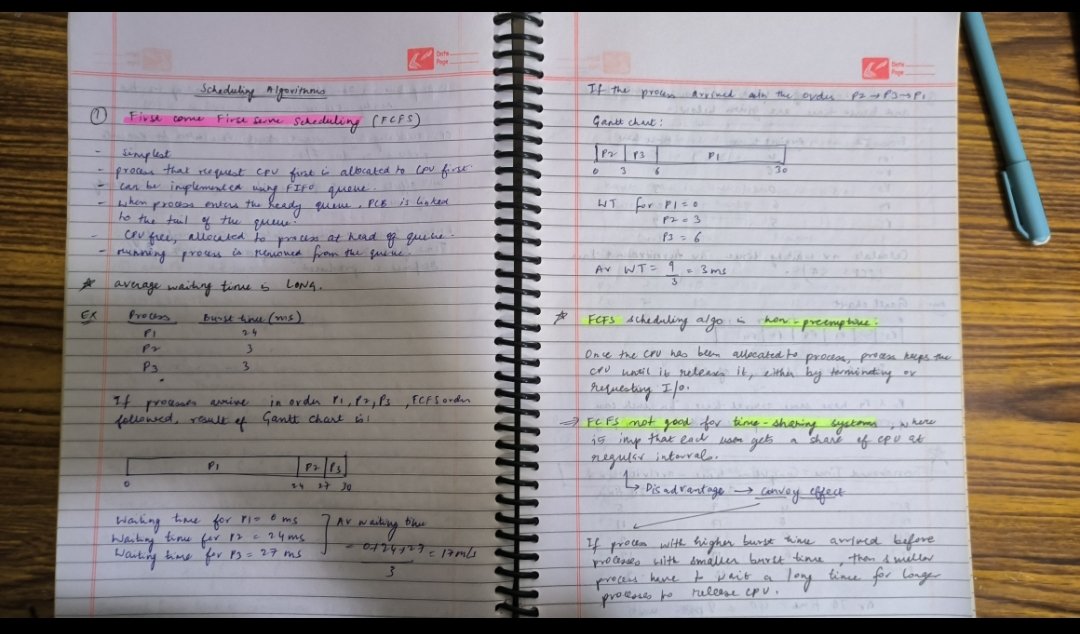 Date
Page
Scheduling Algorithms
① First come First serve Scheduling (FCFS)
- simplest
- process that request CPU first is allocated to CPU first.
- can be implemented using FIFO queue.
- when process enters the ready queue, PCB is linked
to the tail of the queue.
- CPU free, allocated to process at head of queue.
- running process is removed from the queue.
☆ average waiting time is LONG.
EX Process Burst time (ms)
P1 24
P2 3
P3 3
If processes arrive in order P1, P2, P3, FCFS order
followed, result of Gantt Chart is:
P1 P2 P3
0 24 27 30
Waiting time for P1 = 0 ms
Waiting time for P2 = 24 ms
Waiting time for P3 = 27 ms
Av waiting time
= 0+24+27 = 17 m/s
3
Date
Page
If the process arrived with the order P2 → P3 → P1
Gantt chart:
P2 P3 P1
0 3 6 30
WT for P1 = 0
P2 = 3
P3 = 6
Av WT = 9 = 3 ms
3
☆ FCFS scheduling algo is non-preemptive:
Once the CPU has been allocated to process, process keeps the
CPU until it releases it, either by terminating or
requesting I/O.
⇒ FCFS not good for time-sharing systems, where
is imp that each user gets a share of CPU at
regular intervals.
↳ Disadvantage → convoy effect
If process with higher burst time arrived before
processes with smaller burst time, then smaller
process have to wait a long time for longer
processes to release CPU.